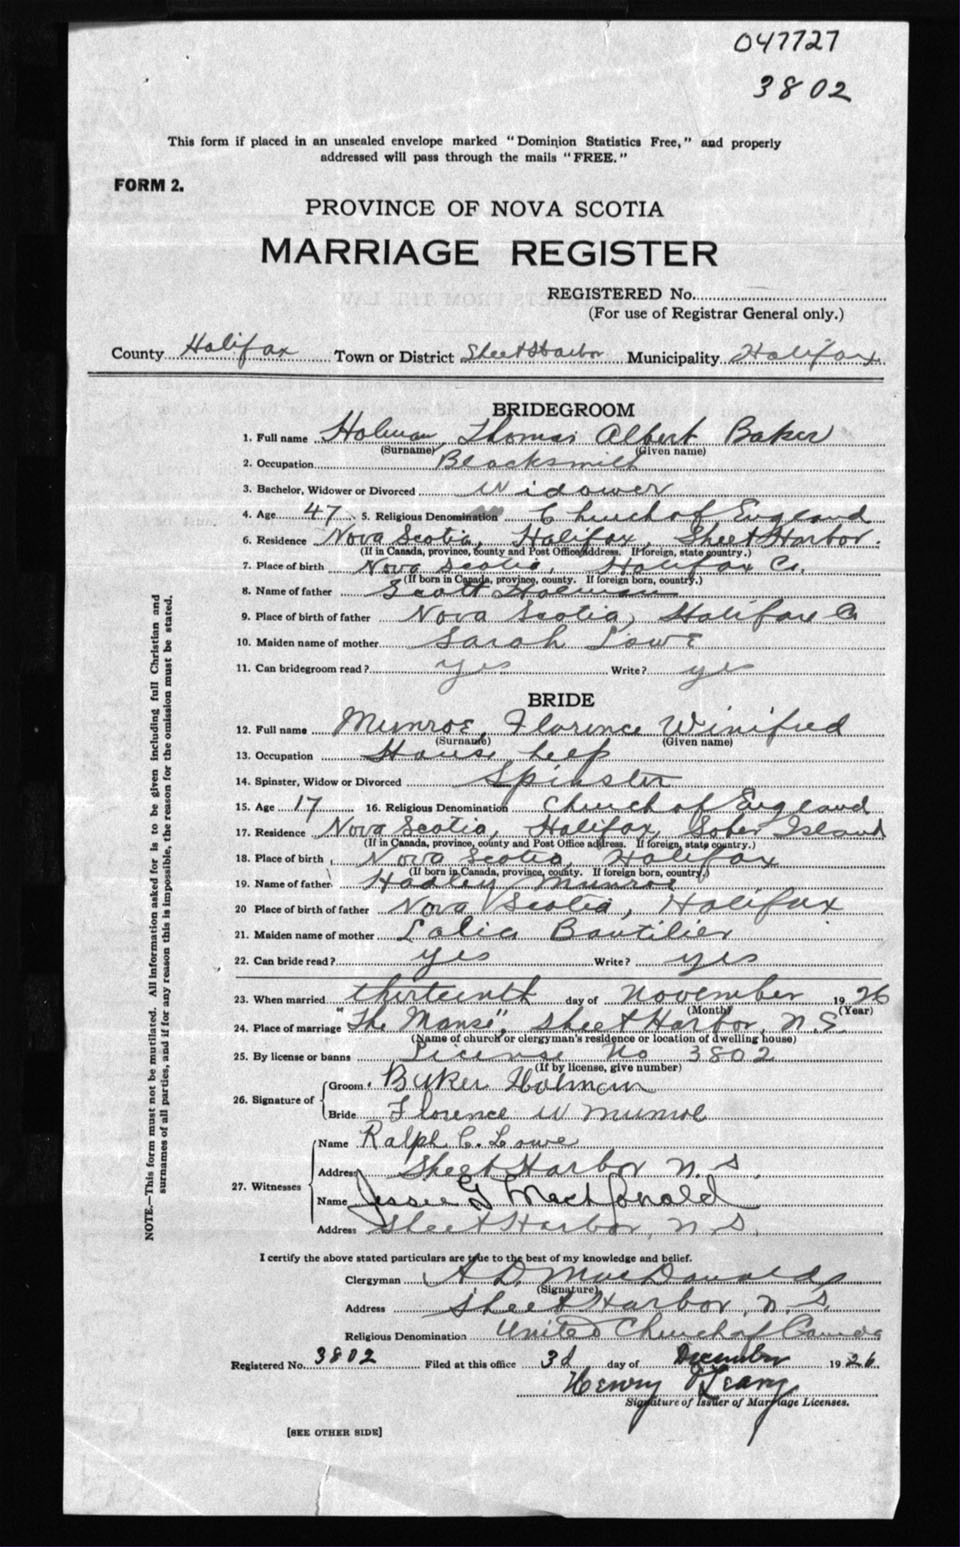 047727
3802
This form if placed in an unsealed envelope marked "Dominion Statistics Free," and properly
addressed will pass through the mails "FREE."
FORM 2.
PROVINCE OF NOVA SCOTIA
MARRIAGE REGISTER
REGISTERED No.
(For use of Registrar General only.)
County Halifax Town or District Sheet Harbor Municipality Halifax
BRIDEGROOM
1. Full name Holman, Thomas Albert Baker
(Surname) (Given name)
2. Occupation Blacksmith
3. Bachelor, Widower or Divorced Widower
4. Age 47 5. Religious Denomination Church of England
6. Residence Nova Scotia, Halifax, Sheet Harbor.
(If in Canada, province, county and Post Office address. If foreign, state country.)
7. Place of birth Nova Scotia, Halifax Co.
(If born in Canada, province, county. If foreign born, country.)
8. Name of father Scott Holman
9. Place of birth of father Nova Scotia, Halifax Co
10. Maiden name of mother Sarah Lowe
11. Can bridegroom read? yes Write? yes
BRIDE
12. Full name Munroe, Florence Winifred
(Surname) (Given name)
13. Occupation House help
14. Spinster, Widow or Divorced Spinster
15. Age 17 16. Religious Denomination Church of England
17. Residence Nova Scotia, Halifax, Sober Island
(If in Canada, province, county and Post Office address. If foreign, state country.)
18. Place of birth Nova Scotia, Halifax
(If born in Canada, province, county. If foreign born, country.)
19. Name of father Hadley Munroe
20 Place of birth of father Nova Scotia, Halifax
21. Maiden name of mother Lalia Boutilier
22. Can bride read? yes Write? yes
23. When married thirteenth day of November 1926
(Month) (Year)
24. Place of marriage "The Manse", Sheet Harbor, N.S.
(Name of church or clergyman's residence or location of dwelling house)
25. By license or banns License No 3802
(If by license, give number)
26. Signature of
Groom Baker Holman
Bride Florence W Munroe
27. Witnesses
Name Ralph C. Lowe
Address Sheet Harbor N.S
Name Jessie G MacDonald
Address Sheet Harbor, N.S.
I certify the above stated particulars are true to the best of my knowledge and belief.
Clergyman A D. MacDonald
(Signature)
Address Sheet Harbor, N.S.
Religious Denomination United Church of Canada
Registered No. 3802 Filed at this office 3d day of December 1926
Henry O'Leary
Signature of Issuer of Marriage Licenses.
[SEE OTHER SIDE]
NOTE.—This form must not be mutilated. All information asked for is to be given including full Christian and
surnames of all parties, and if for any reason this is impossible, the reason for the omission must be stated.